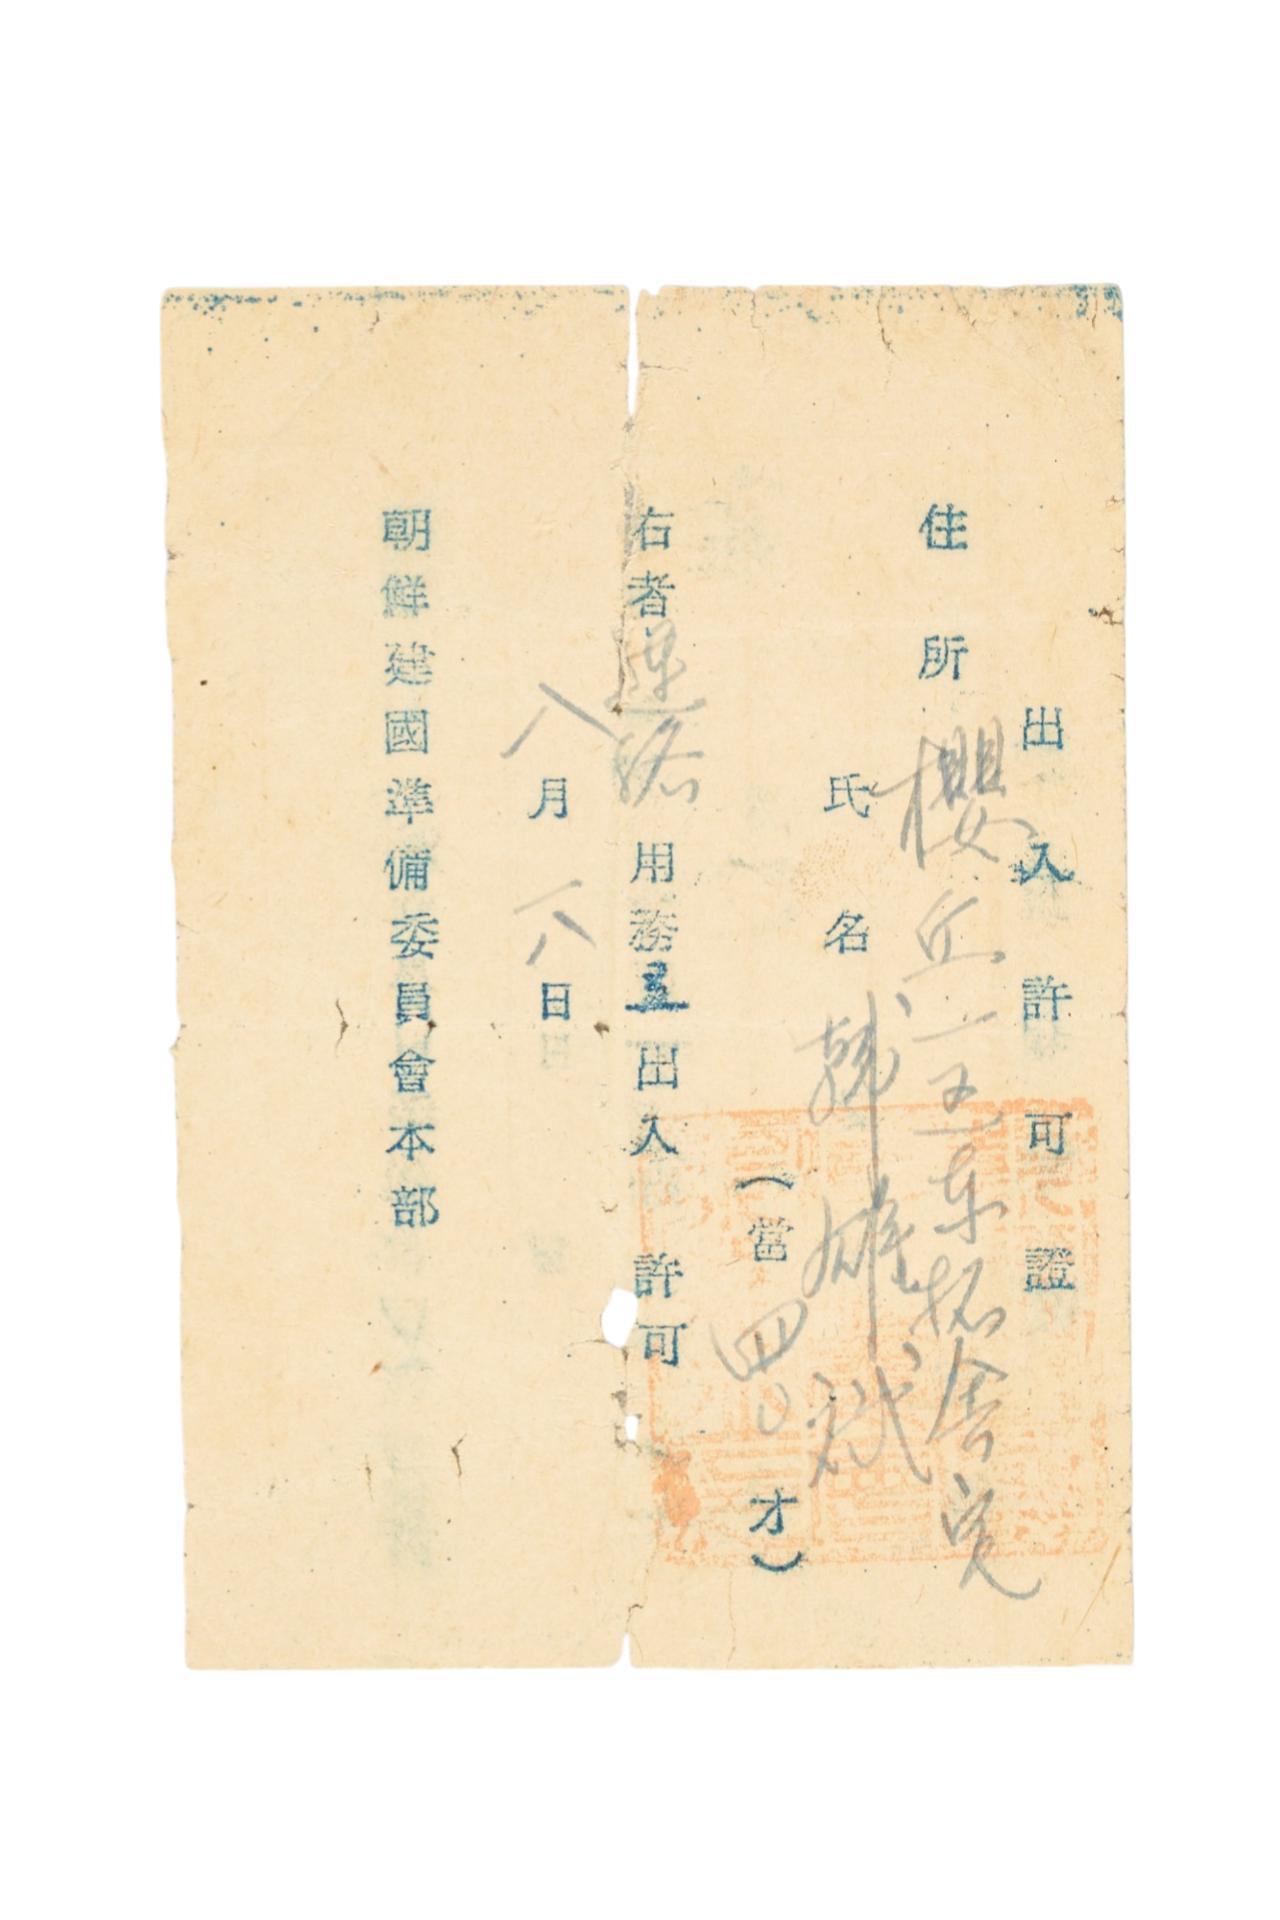 出入許可證
住所 櫻丘一五東拓舍宅
氏名 韓雄弍
(當四〇才)
右者連絡用務로出入許可
八月一八日
朝鮮建國準備委員會本部